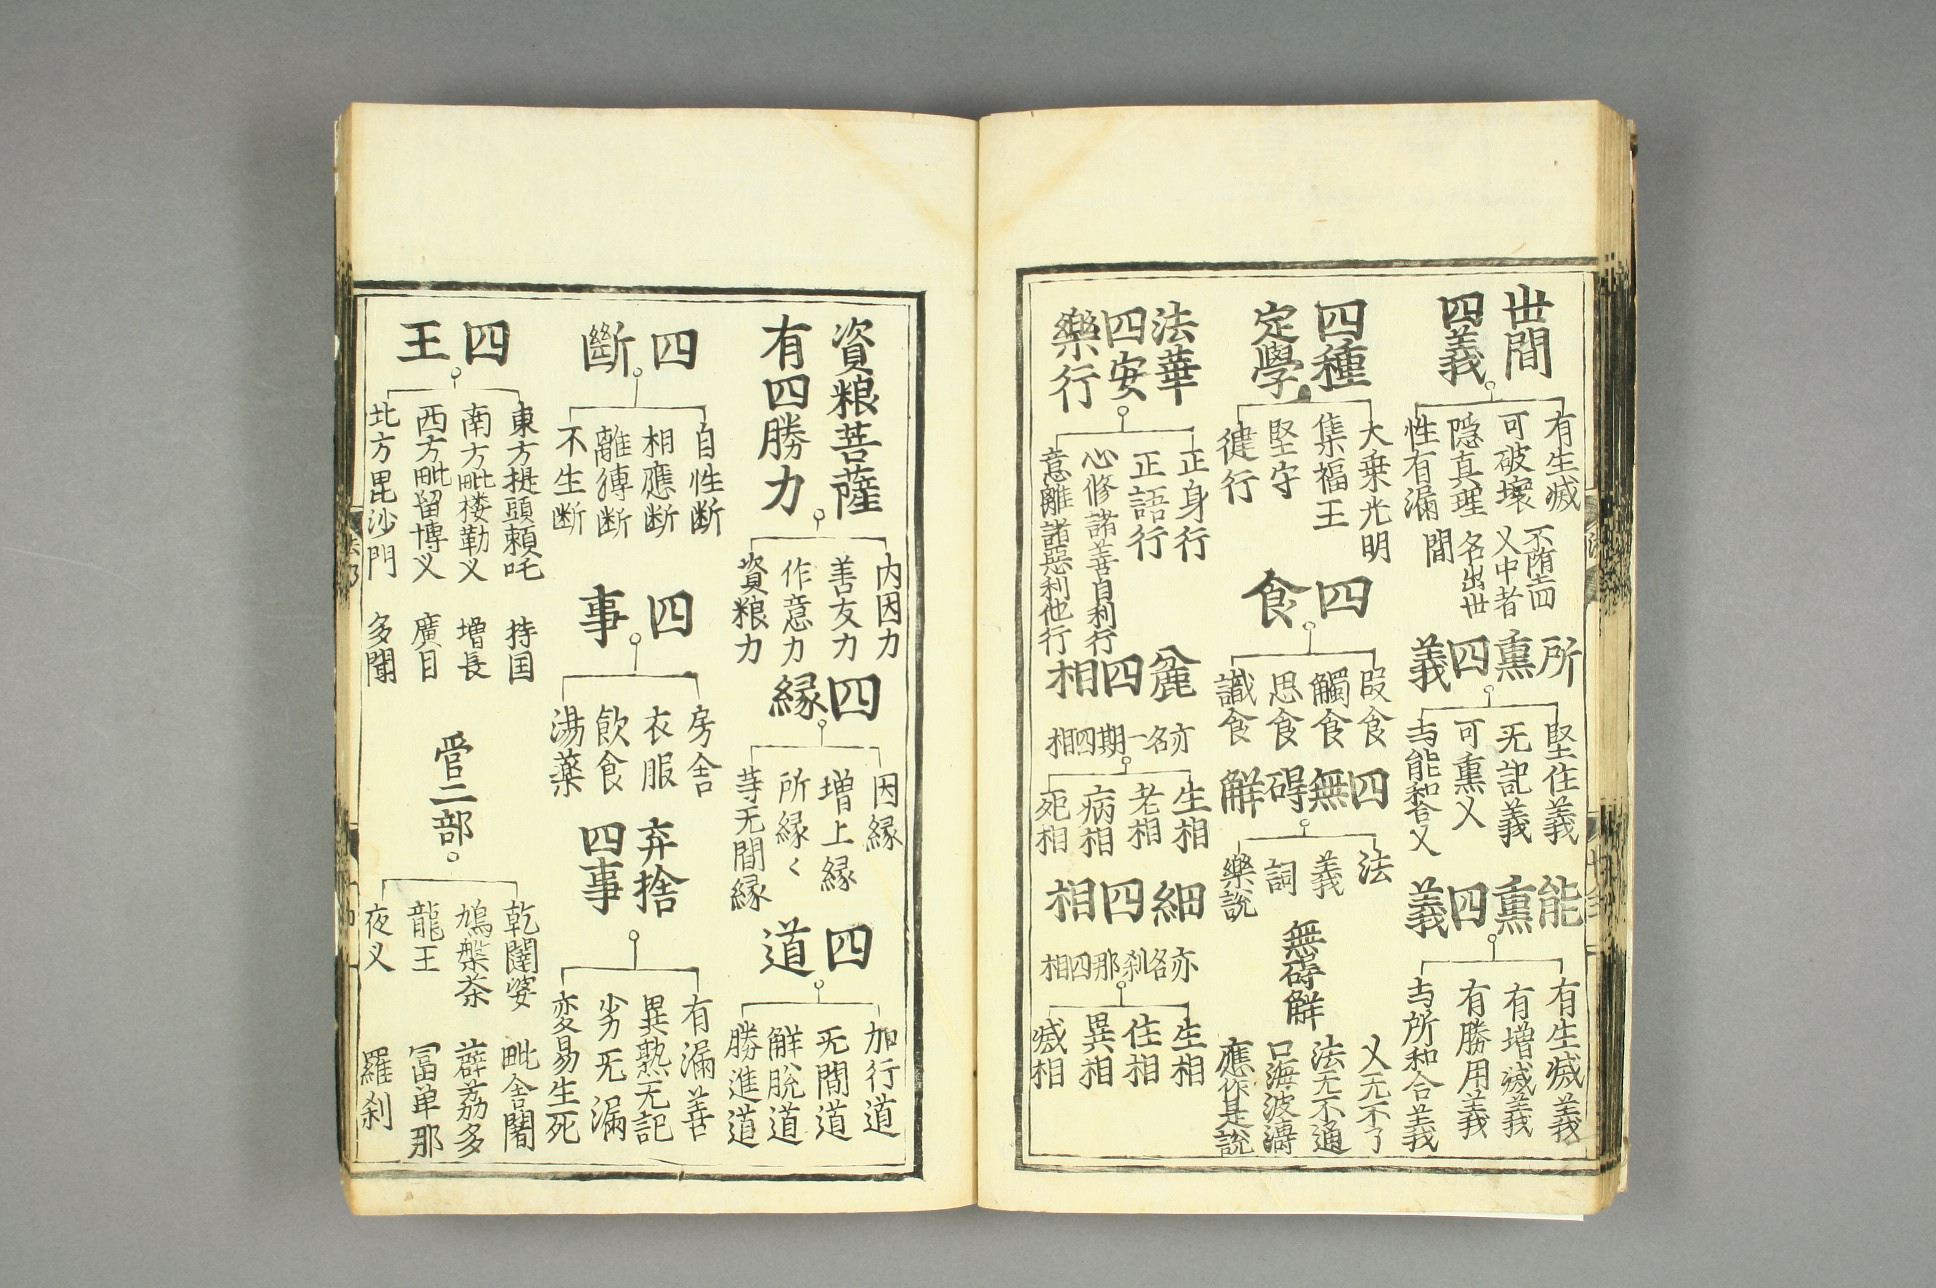 世間
四義
有生滅
可破壞
隠真理
性有漏
不墮四
义中者
名出世
間
所熏四義
堅住義
无記義
可熏义
与能和合义
能熏四義
有生滅義
有增減義
有勝用義
与所和合義
四種
定學
大乗光明
集福王
堅守
健行
四食
段食
觸食
思食
識食
四無碍解
法
義
詞
樂説
無碍解
义无不了
法无不通
口海波濤
應作是説
法華
四安
樂行
正身行
正語行
心修諸善自利行
意離諸惡利他行
麁四相
亦名一期四相
生相
老相
病相
死相
細四相
亦名刹那四相
生相
住相
異相
滅相
資粮菩薩
有四勝力
内因力
善友力
作意力
資粮力
四縁
因縁
増上縁
所縁々
等无間縁
四道
加行道
无間道
解脱道
勝進道
四斷
自性断
相應断
離縛断
不生断
四事
房舍
衣服
飲食
湯薬
弃捨
四事
有漏善
異熟无記
劣无漏
変易生死
四王
東方提頭頼吒 持国
南方毗楼勒义 増長
西方毗留博义 廣目
北方毘沙門 多聞
管二部
乾闥婆 毗舍闍
鳩槃茶 薜荔多
龍王 冨单那
夜义 羅刹